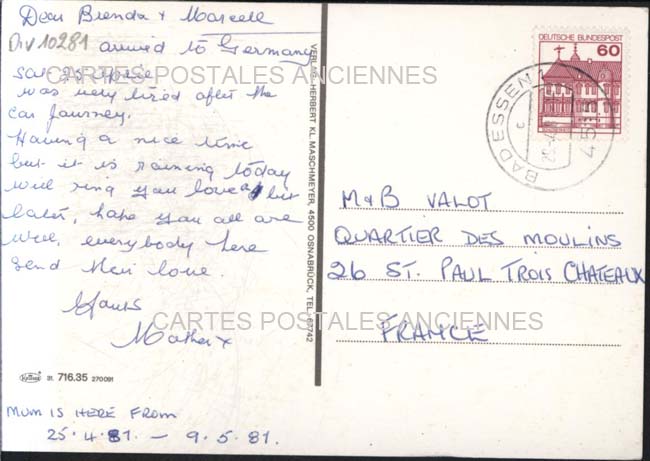 Dear Brenda & Marcell
Div 10281
arrived to Germany
CARTES POSTALES ANCIENNES
was very tired after the
car journey.
Having a nice time
but it is raining today
will ring you love a bit
later, hope you all are
well, everybody here
send their love.
Mother x
CARTES POSTALES ANCIENNES
31. 716.35 270091
MUM IS HERE FROM
25.4.81. - 9.5.81.
VERLAG HERBERT KL. MASCHMEYER, 4500 OSNABRÜCK, TEL.
DEUTSCHE BUNDESPOST
60
BAD ESSEN 1
4515
M & B VALOT
QUARTIER DES MOULINS
26 ST. PAUL TROIS CHATEAUX
FRANCE